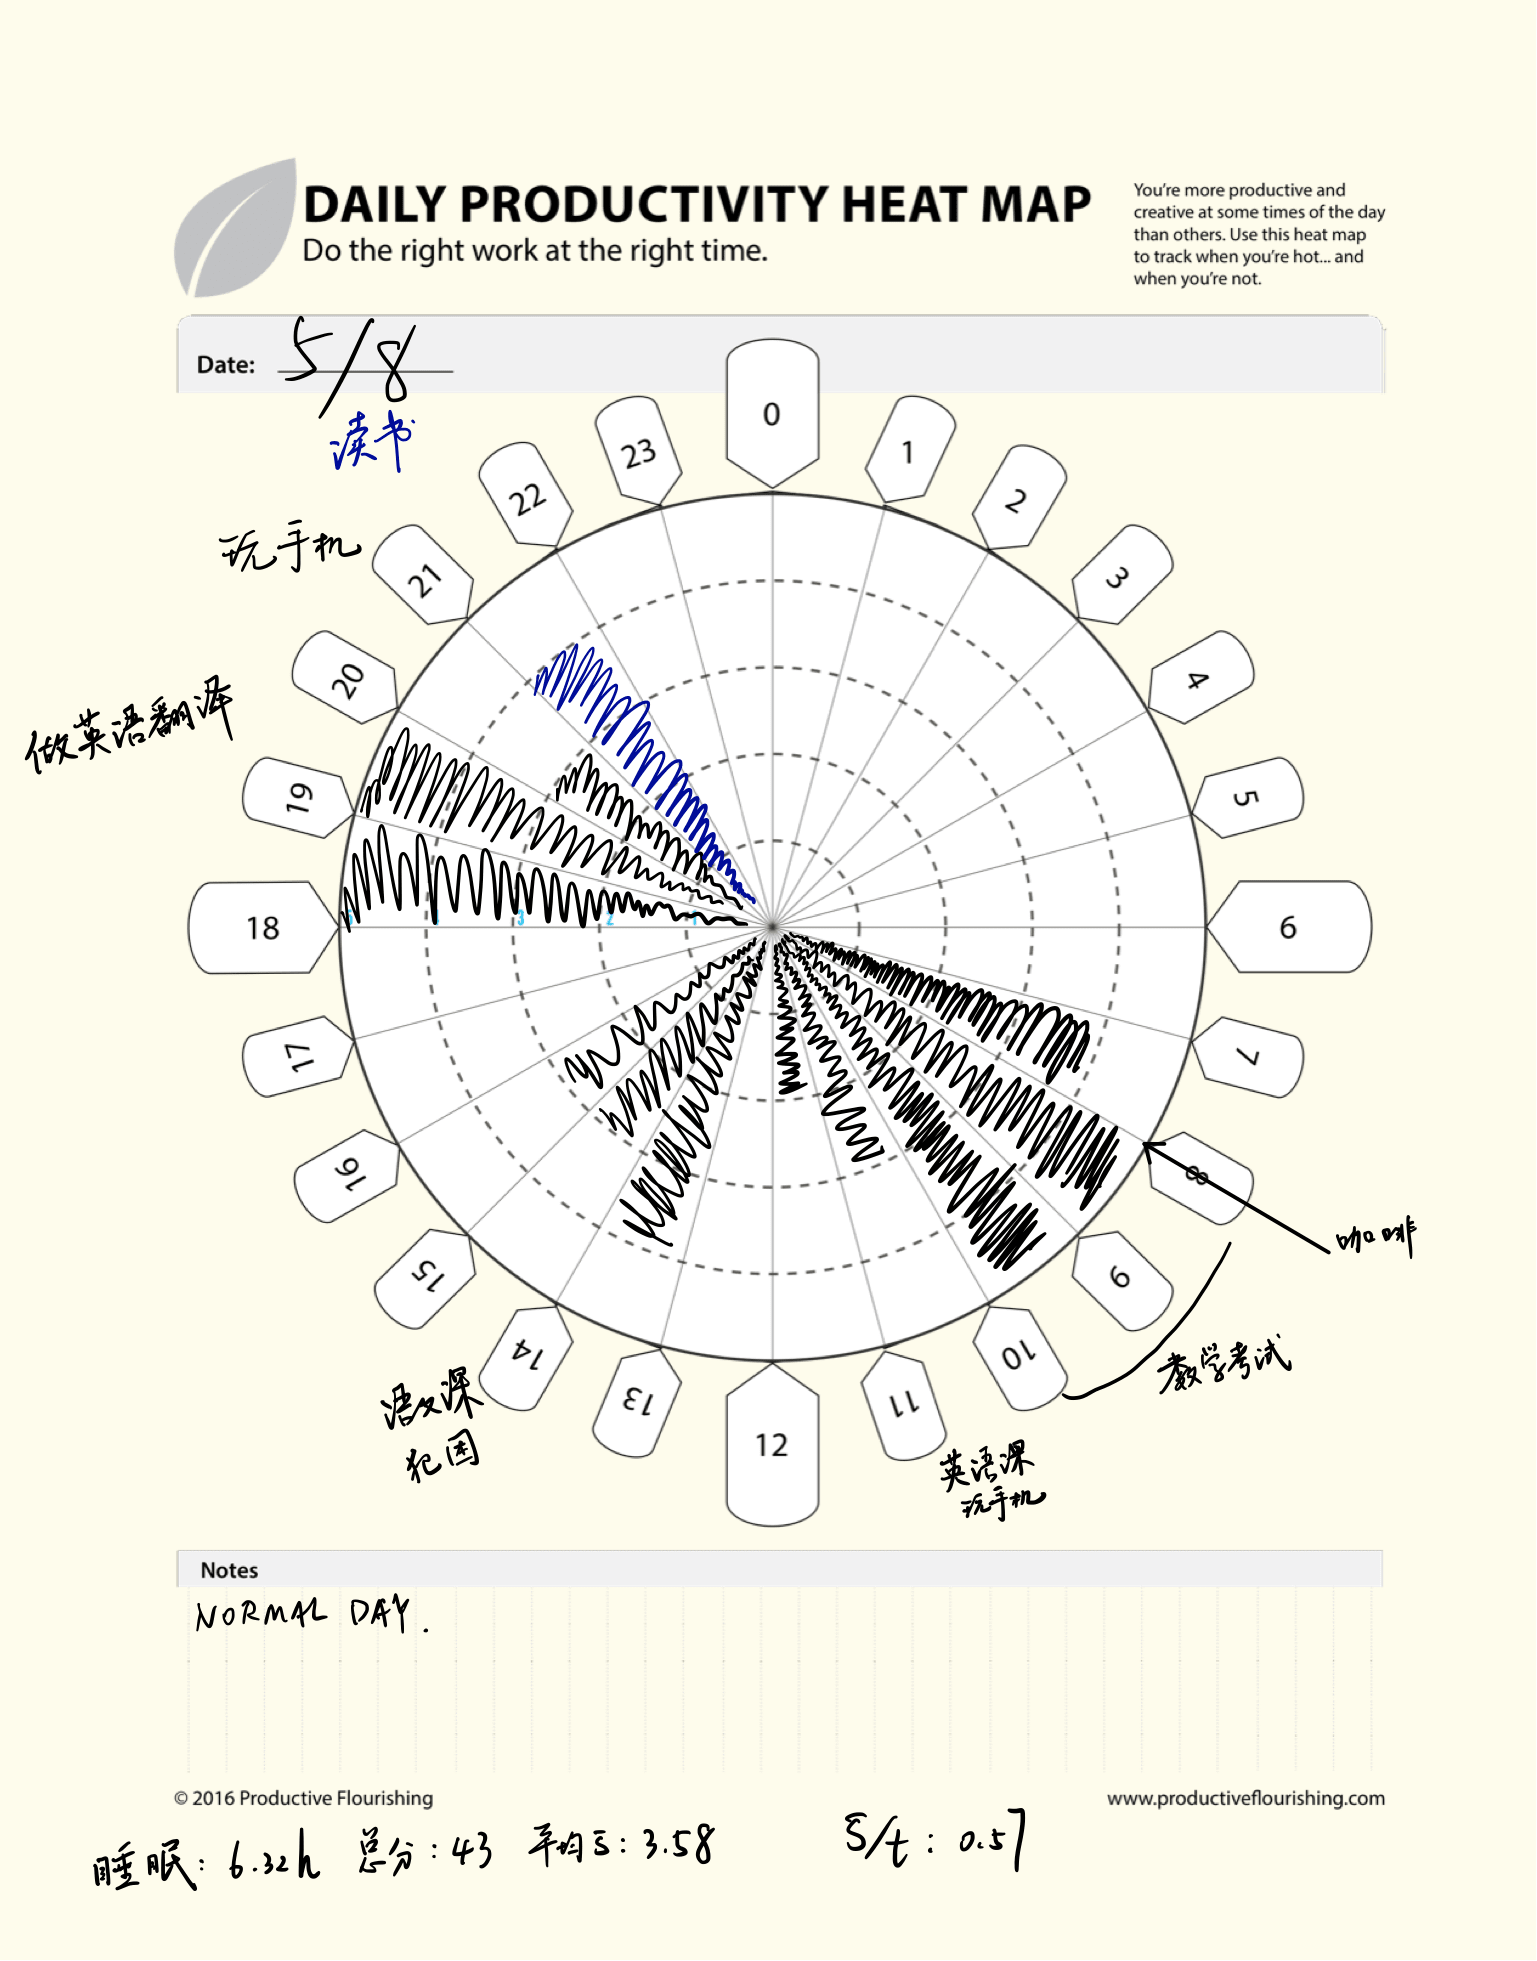 DAILY PRODUCTIVITY HEAT MAP
Do the right work at the right time.
You're more productive and
creative at some times of the day
than others. Use this heat map
to track when you're hot... and
when you're not.
Date: 5/8
读书
玩手机
做英语翻译
0
1
2
3
4
5
6
7
8
9
10
11
12
13
14
15
16
17
18
19
20
21
22
23
5
3
2
1
咖啡
数学考试
英语课
玩手机
语文课
犯困
Notes
NORMAL DAY.
© 2016 Productive Flourishing
www.productiveflourishing.com
睡眠: 6.32h 总分: 43 平均s̄: 3.58 s̄/t: 0.57